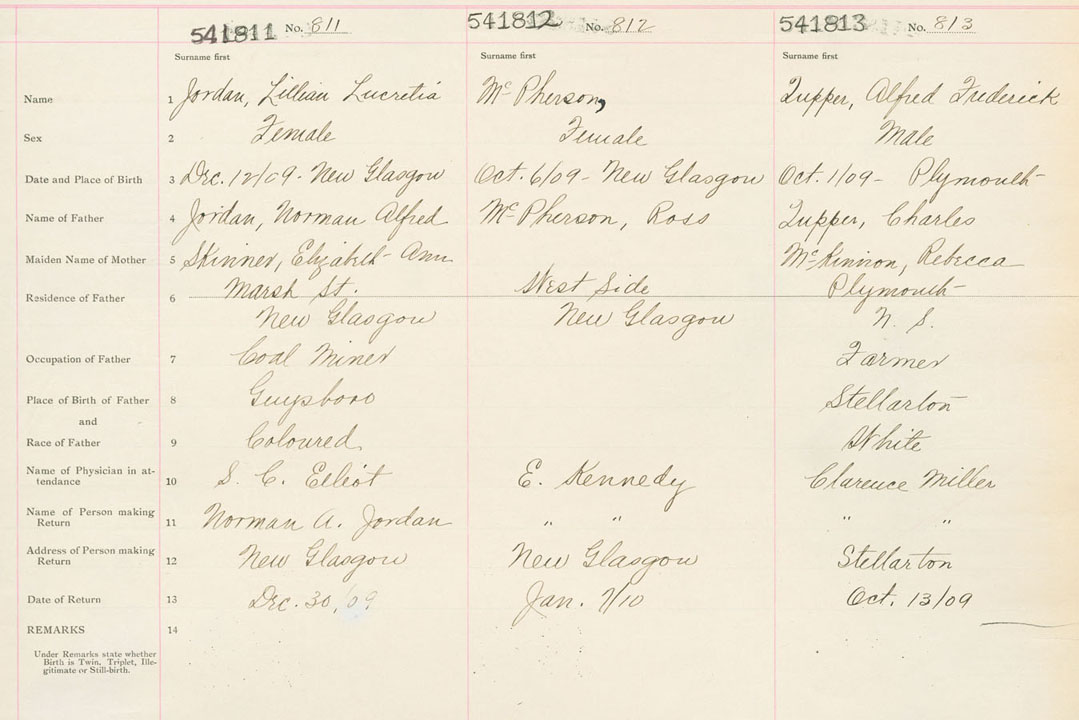 541811 No. 811 541812 No. 812 541813 No. 813
Surname first Surname first Surname first
Name 1 Jordan, Lillian Lucretia McPherson, Tupper, Alfred Frederick
Sex 2 Female Female Male
Date and Place of Birth 3 Dec. 12/09 - New Glasgow Oct. 6/09 - New Glasgow Oct. 1/09 - Plymouth
Name of Father 4 Jordan, Norman Alfred McPherson, Ross Tupper, Charles
Maiden Name of Mother 5 Skinner, Elizabeth Ann McKinnon, Rebecca
Residence of Father 6 Marsh St. West Side Plymouth
New Glasgow New Glasgow N. S.
Occupation of Father 7 Coal Miner Farmer
Place of Birth of Father 8 Guysboro Stellarton
and
Race of Father 9 Coloured White
Name of Physician in at-
tendance 10 S. C. Elliot E. Kennedy Clarence Miller
Name of Person making
Return 11 Norman A. Jordan " " " "
Address of Person making
Return 12 New Glasgow New Glasgow Stellarton
Date of Return 13 Dec. 30, /09 Jan. 7/10 Oct. 13/09
REMARKS 14
Under Remarks state whether
Birth is Twin, Triplet, Ille-
gitimate or Still-birth.